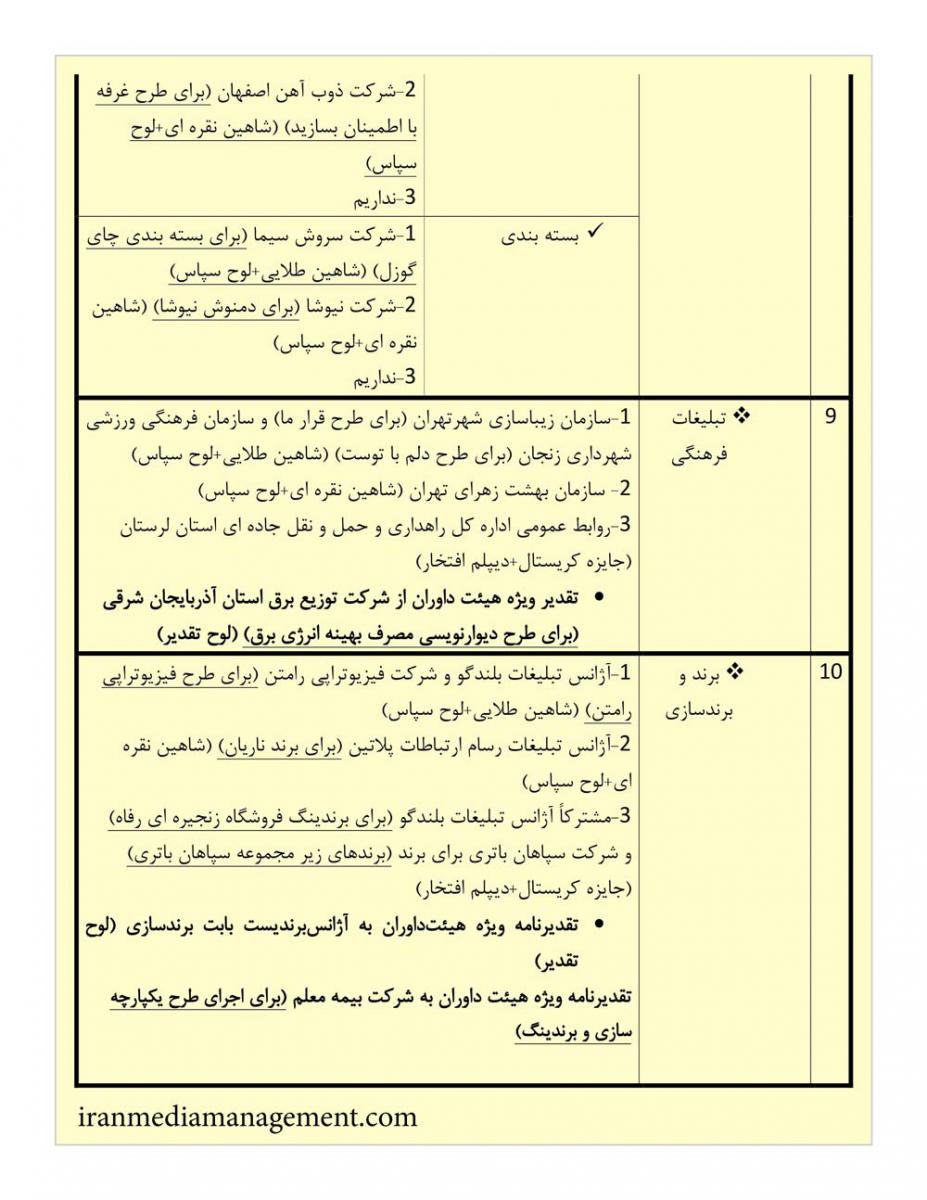 2-شرکت ذوب آهن اصفهان (برای طرح غرفه
با اطمینان بسازید) (شاهین نقره ای+لوح
سپاس)
3-نداریم
✓ بسته بندی
1-شرکت سروش سیما (برای بسته بندی چای
گوزل) (شاهین طلایی+لوح سپاس)
2-شرکت نیوشا (برای دمنوش نیوشا) (شاهین
نقره ای+لوح سپاس)
3-نداریم
9
❖ تبلیغات
فرهنگی
1-سازمان زیباسازی شهرتهران (برای طرح قرار ما) و سازمان فرهنگی ورزشی
شهرداری زنجان (برای طرح دلم با توست) (شاهین طلایی+لوح سپاس)
2- سازمان بهشت زهرای تهران (شاهین نقره ای+لوح سپاس)
3-روابط عمومی اداره کل راهداری و حمل و نقل جاده ای استان لرستان
(جایزه کریستال+دیپلم افتخار)
• تقدیر ویژه هیئت داوران از شرکت توزیع برق استان آذربایجان شرقی
(برای طرح دیوارنویسی مصرف بهینه انرژی برق) (لوح تقدیر)
10
❖ برند و
برندسازی
1-آژانس تبلیغات بلندگو و شرکت فیزیوتراپی رامتن (برای طرح فیزیوتراپی
رامتن) (شاهین طلایی+لوح سپاس)
2-آژانس تبلیغات رسام ارتباطات پلاتین (برای برند ناریان) (شاهین نقره
ای+لوح سپاس)
3-مشترکاً آژانس تبلیغات بلندگو (برای برندینگ فروشگاه زنجیره ای رفاه)
و شرکت سپاهان باتری برای برند (برندهای زیر مجموعه سپاهان باتری)
(جایزه کریستال+دیپلم افتخار)
• تقدیرنامه ویژه هیئت‌داوران به آژانس‌برندیست بابت برندسازی (لوح
تقدیر)
تقدیرنامه ویژه هیئت داوران به شرکت بیمه معلم (برای اجرای طرح یکپارچه
سازی و برندینگ)
iranmediamanagement.com